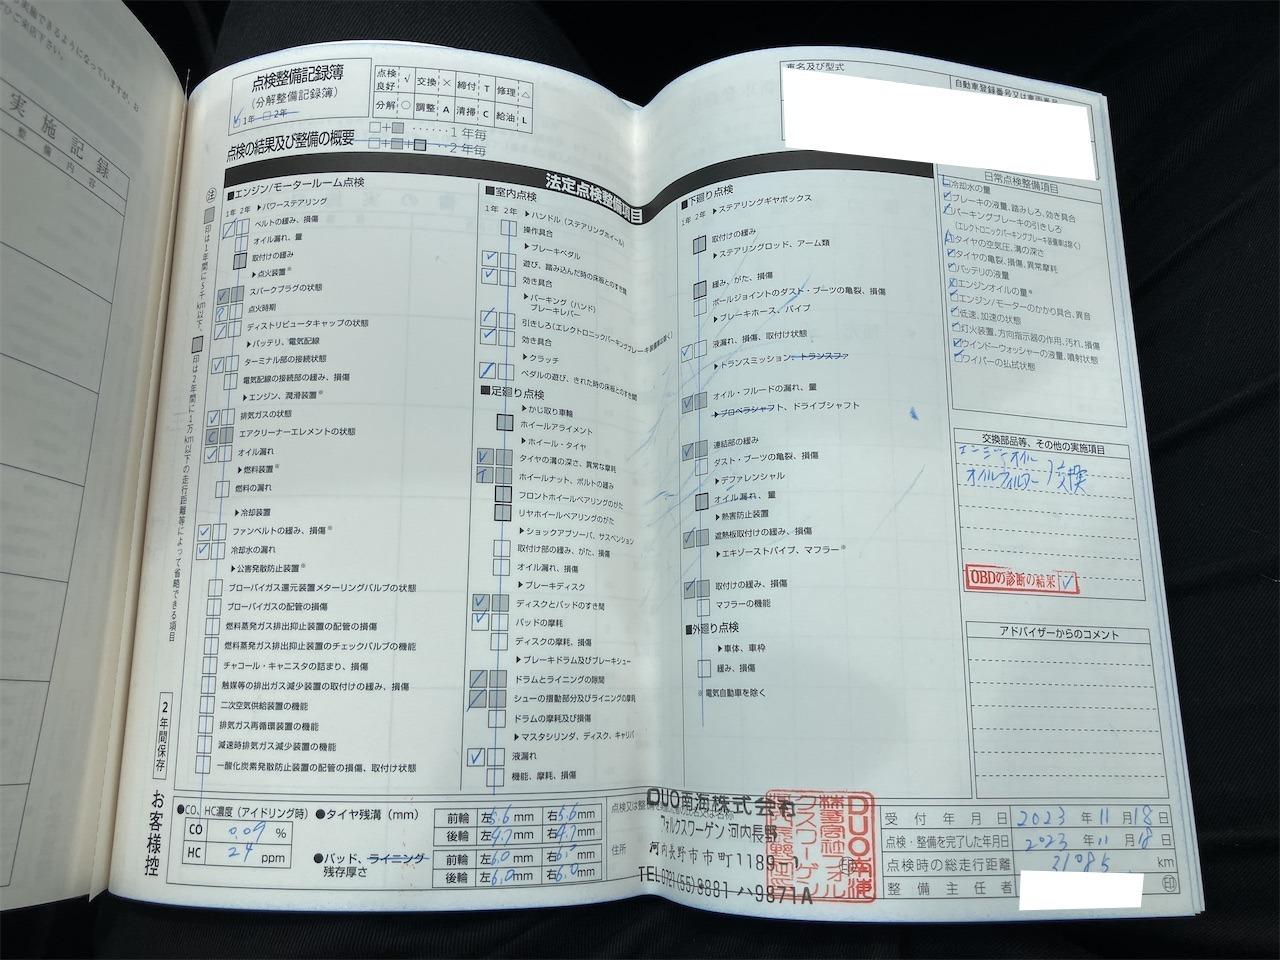 実施記録
整備内容
点検整備記録簿
(分解整備記録簿)
1年 2年
点検良好 √ 交換 × 締付 T 修理 △
分解 ○ 調整 A 清掃 C 給油 L
点検の結果及び整備の概要
□+■……1年毎
□+■+■……2年毎
車名及び型式
法定点検整備項目
■エンジン/モータールーム点検
1年 2年
▶パワーステアリング
ベルトの緩み、損傷
オイル漏れ、量
取付けの緩み
▶点火装置※
スパークプラグの状態
点火時期
ディストリビュータキャップの状態
▶バッテリ、電気配線
ターミナル部の接続状態
電気配線の接続部の緩み、損傷
▶エンジン、潤滑装置※
排気ガスの状態
エアクリーナーエレメントの状態
オイル漏れ
▶燃料装置※
燃料の漏れ
▶冷却装置
ファンベルトの緩み、損傷※
冷却水の漏れ
▶公害発散防止装置※
ブローバイガス還元装置メターリングバルブの状態
ブローバイガスの配管の損傷
燃料蒸発ガス排出抑止装置の配管の損傷
燃料蒸発ガス排出抑止装置のチェックバルブの機能
チャコール・キャニスタの詰まり、損傷
触媒等の排出ガス減少装置の取付けの緩み、損傷
二次空気供給装置の機能
排気ガス再循環装置の機能
減速時排気ガス減少装置の機能
一酸化炭素発散防止装置の配管の損傷、取付け状態
■室内点検
1年 2年
▶ハンドル(ステアリングホイール)
操作具合
▶ブレーキペダル
遊び、踏み込んだ時の床板とのすき間
効き具合
▶パーキング(ハンド)
ブレーキレバー
引きしろ(エレクトロニックパーキングブレーキ装備車は除く)
効き具合
▶クラッチ
ペダルの遊び、きれた時の床板とのすき間
■足廻り点検
▶かじ取り車輪
ホイールアライメント
▶ホイール・タイヤ
タイヤの溝の深さ、異常な摩耗
ホイールナット、ボルトの緩み
フロントホイールベアリングのがた
リヤホイールベアリングのがた
▶ショックアブソーバ、サスペンション
取付け部の緩み、がた、損傷
オイル漏れ、損傷
▶ブレーキディスク
ディスクとパッドのすき間
パッドの摩耗
ディスクの摩耗、損傷
▶ブレーキドラム及びブレーキシュー
ドラムとライニングの隙間
シューの摺動部分及びライニングの摩耗
ドラムの摩耗及び損傷
▶マスタシリンダ、ディスク、キャリパ
液漏れ
機能、摩耗、損傷
■下廻り点検
1年 2年
▶ステアリングギヤボックス
取付けの緩み
▶ステアリングロッド、アーム類
緩み、がた、損傷
ボールジョイントのダスト・ブーツの亀裂、損傷
▶ブレーキホース、パイプ
液漏れ、損傷、取付け状態
▶トランスミッション、トランスファ
オイル・フルードの漏れ、量
▶プロペラシャフト、ドライブシャフト
連結部の緩み
ダスト・ブーツの亀裂、損傷
▶デファレンシャル
オイル漏れ、量
▶熱害防止装置
遮熱板取付けの緩み、損傷
▶エキゾーストパイプ、マフラー※
取付けの緩み、損傷
マフラーの機能
■外廻り点検
▶車体、車枠
緩み、損傷
※電気自動車を除く
日常点検整備項目
冷却水の量
ブレーキの液量、踏みしろ、効き具合
パーキングブレーキの引きしろ
(エレクトロニックパーキングブレーキ装備車は除く)
タイヤの空気圧、溝の深さ
タイヤの亀裂、損傷、異常摩耗
バッテリの液量
エンジンオイルの量※
エンジン/モーターのかかり具合、異音
低速、加速の状態
灯火装置、方向指示器の作用、汚れ、損傷
ウインドーウォッシャーの液量、噴射状態
ワイパーの払拭状態
交換部品等、その他の実施項目
エンジンオイル
オイルフィルター 交換
OBDの診断の結果 ✓
アドバイザーからのコメント
2年間保存
お客様控
●CO、HC濃度(アイドリング時)
CO 0.09 %
HC 24 ppm
●タイヤ残溝(mm)
前輪 左5.6mm 右5.6mm
後輪 左4.7mm 右4.7mm
●パッド、ライニング残存厚さ
前輪 左6.0mm 右6.0mm
後輪 左6.0mm 右6.0mm
住所
DUO南海株式会社
フォルクスワーゲン 河内長野
河内長野市市町1189
TEL0721(55)9881 ハ9871A
受付年月日 2023年11月18日
点検・整備を完了した年月日 2023年11月18日
点検時の総走行距離 31085 km
整備主任者 印